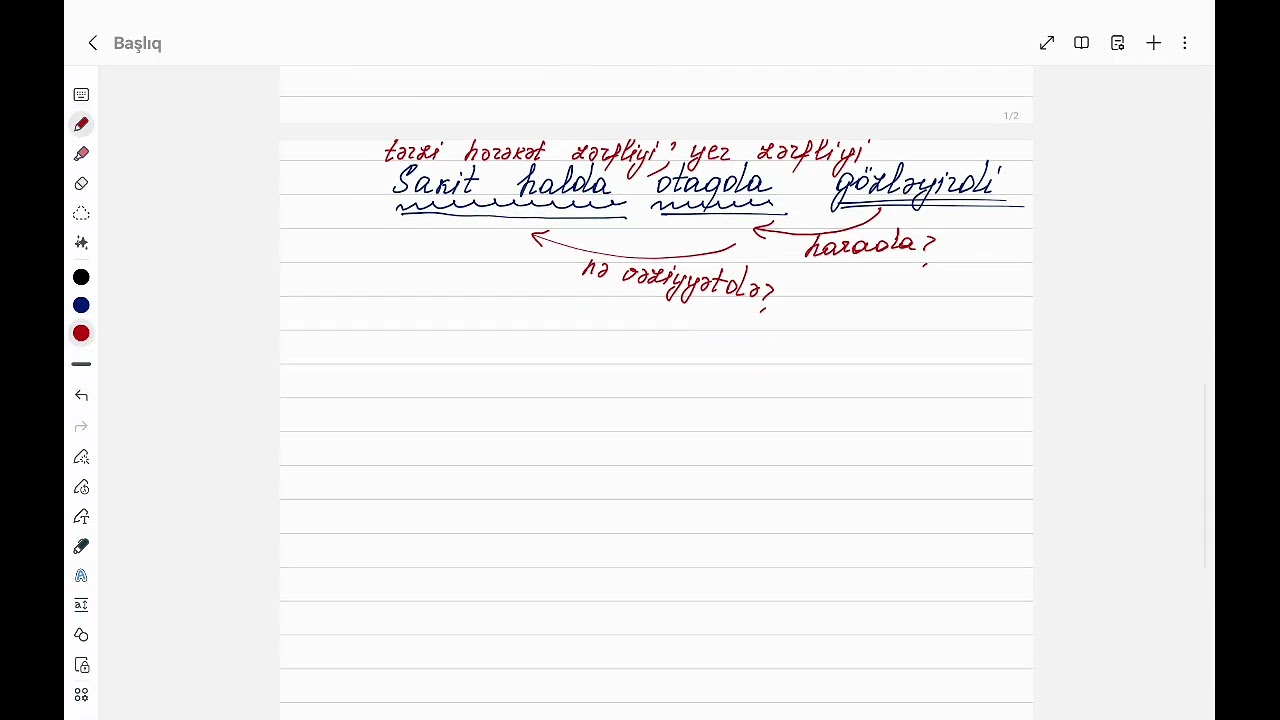 Başlıq
1/2
tərzi hərəkət zərfliyi, yer zərfliyi
Sakit halda otaqda gözləyirdi
harada?
nə vəziyyətdə?